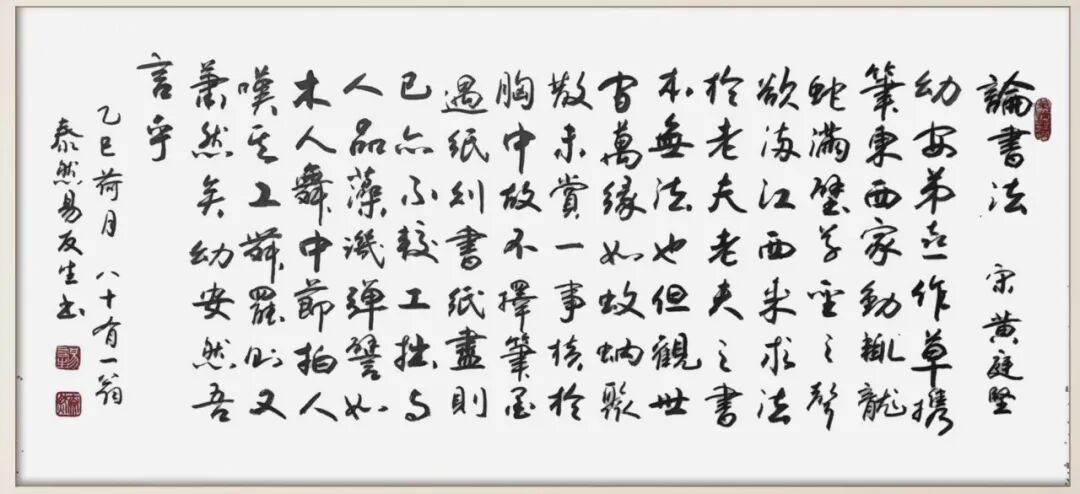 論書法 宋黄庭堅
幼安弟喜作草携
筆東西家動輒龍
蛇滿壁草聖之聲
欲滿江西来求法
於老夫老夫之書
本無法也但觀世
间萬緣如蚊蚋聚
散未賞一事横於
胸中故不擇筆墨
遇紙则書紙盡則
已亦不較工拙与
人品藻譏彈譬如
木人舞中節拍人
嘆其工舞罷则又
蕭然矣幼安然吾
言乎
乙巳荷月 八十有一翁
泰然易友生书